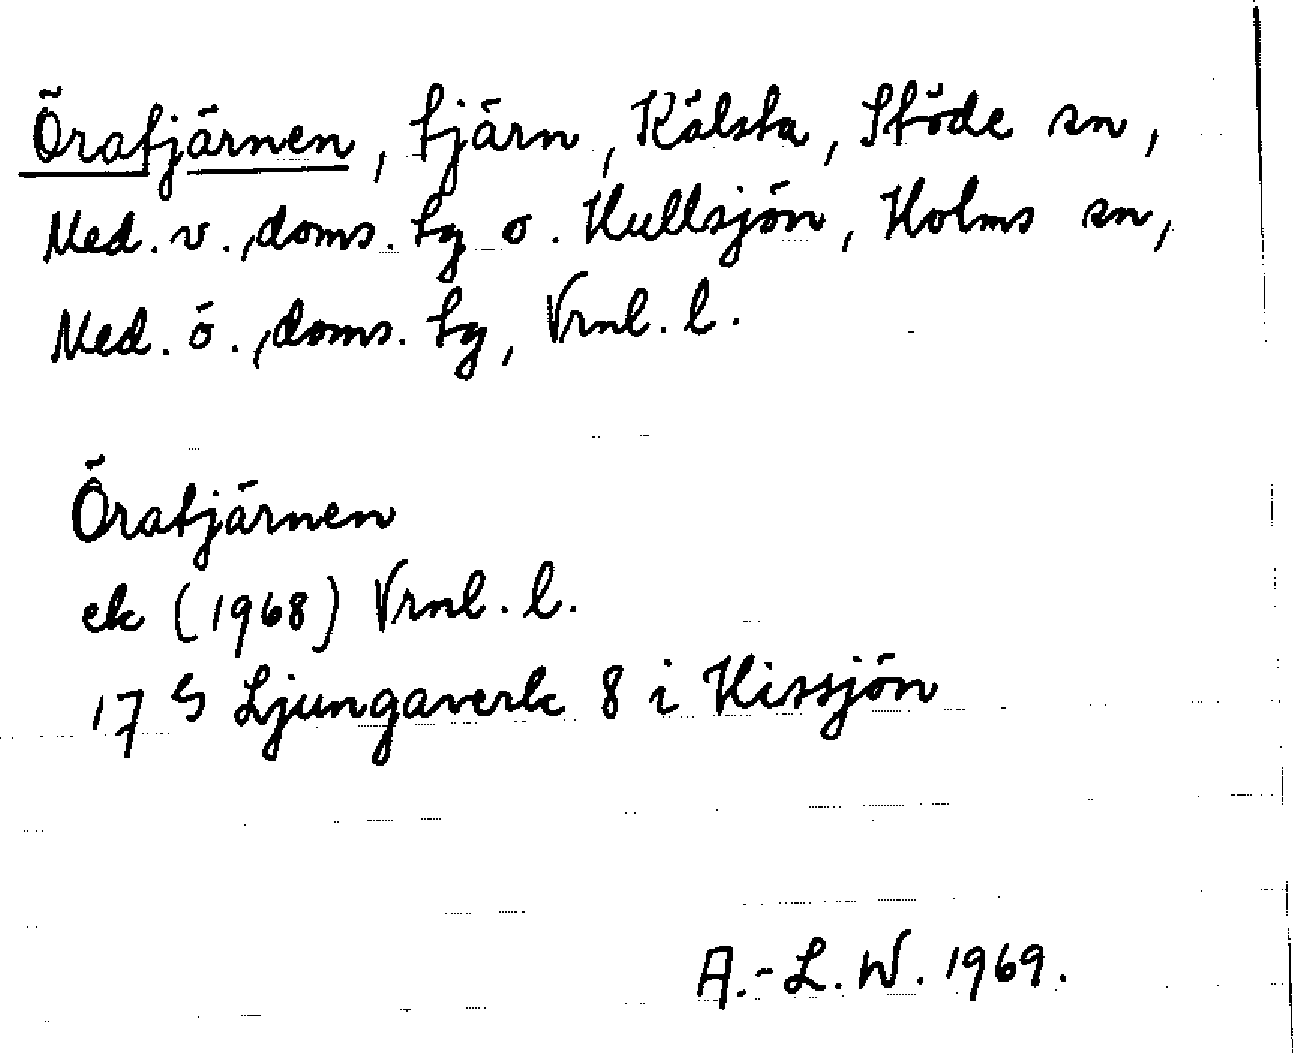 Öratjärnen, tjärn, Kälsta, Stöde sn,
Med. v., doms. tg o. Kullsjön, Holms sn,
Med. ö., doms. tg, Vrnl. l.
Öratjärnen
ek (1968) Vrnl. l.
17 G Ljungaverk 8 i Kissjön
A.-L. W. 1969.